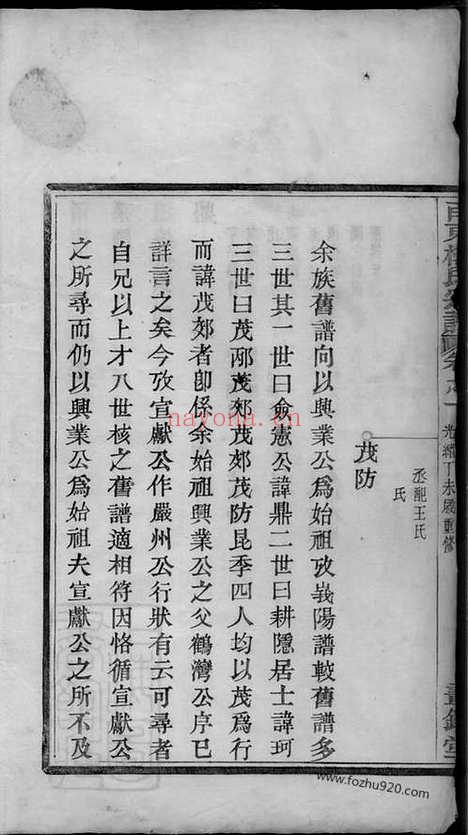 光緒丁未歲重修
茂防
丞配王氏
氏
余族舊譜向以興業公爲始祖攷義陽譜較舊譜多
三世其一世曰僉憲公諱鼎二世曰耕隱居士諱珂
三世曰茂邴茂郊茂郊茂防昆季四人均以茂爲行
而諱茂郊者卽係余始祖興業公之父鶴灣公序已
詳言之矣今攷宣獻公作嚴州公行狀有云可尋者
自兄以上才八世核之舊譜適相符因恪循宣獻公
之所尋而仍以興業公爲始祖夫宣獻公之所不及
nayona.cn
www.fozhu920.com